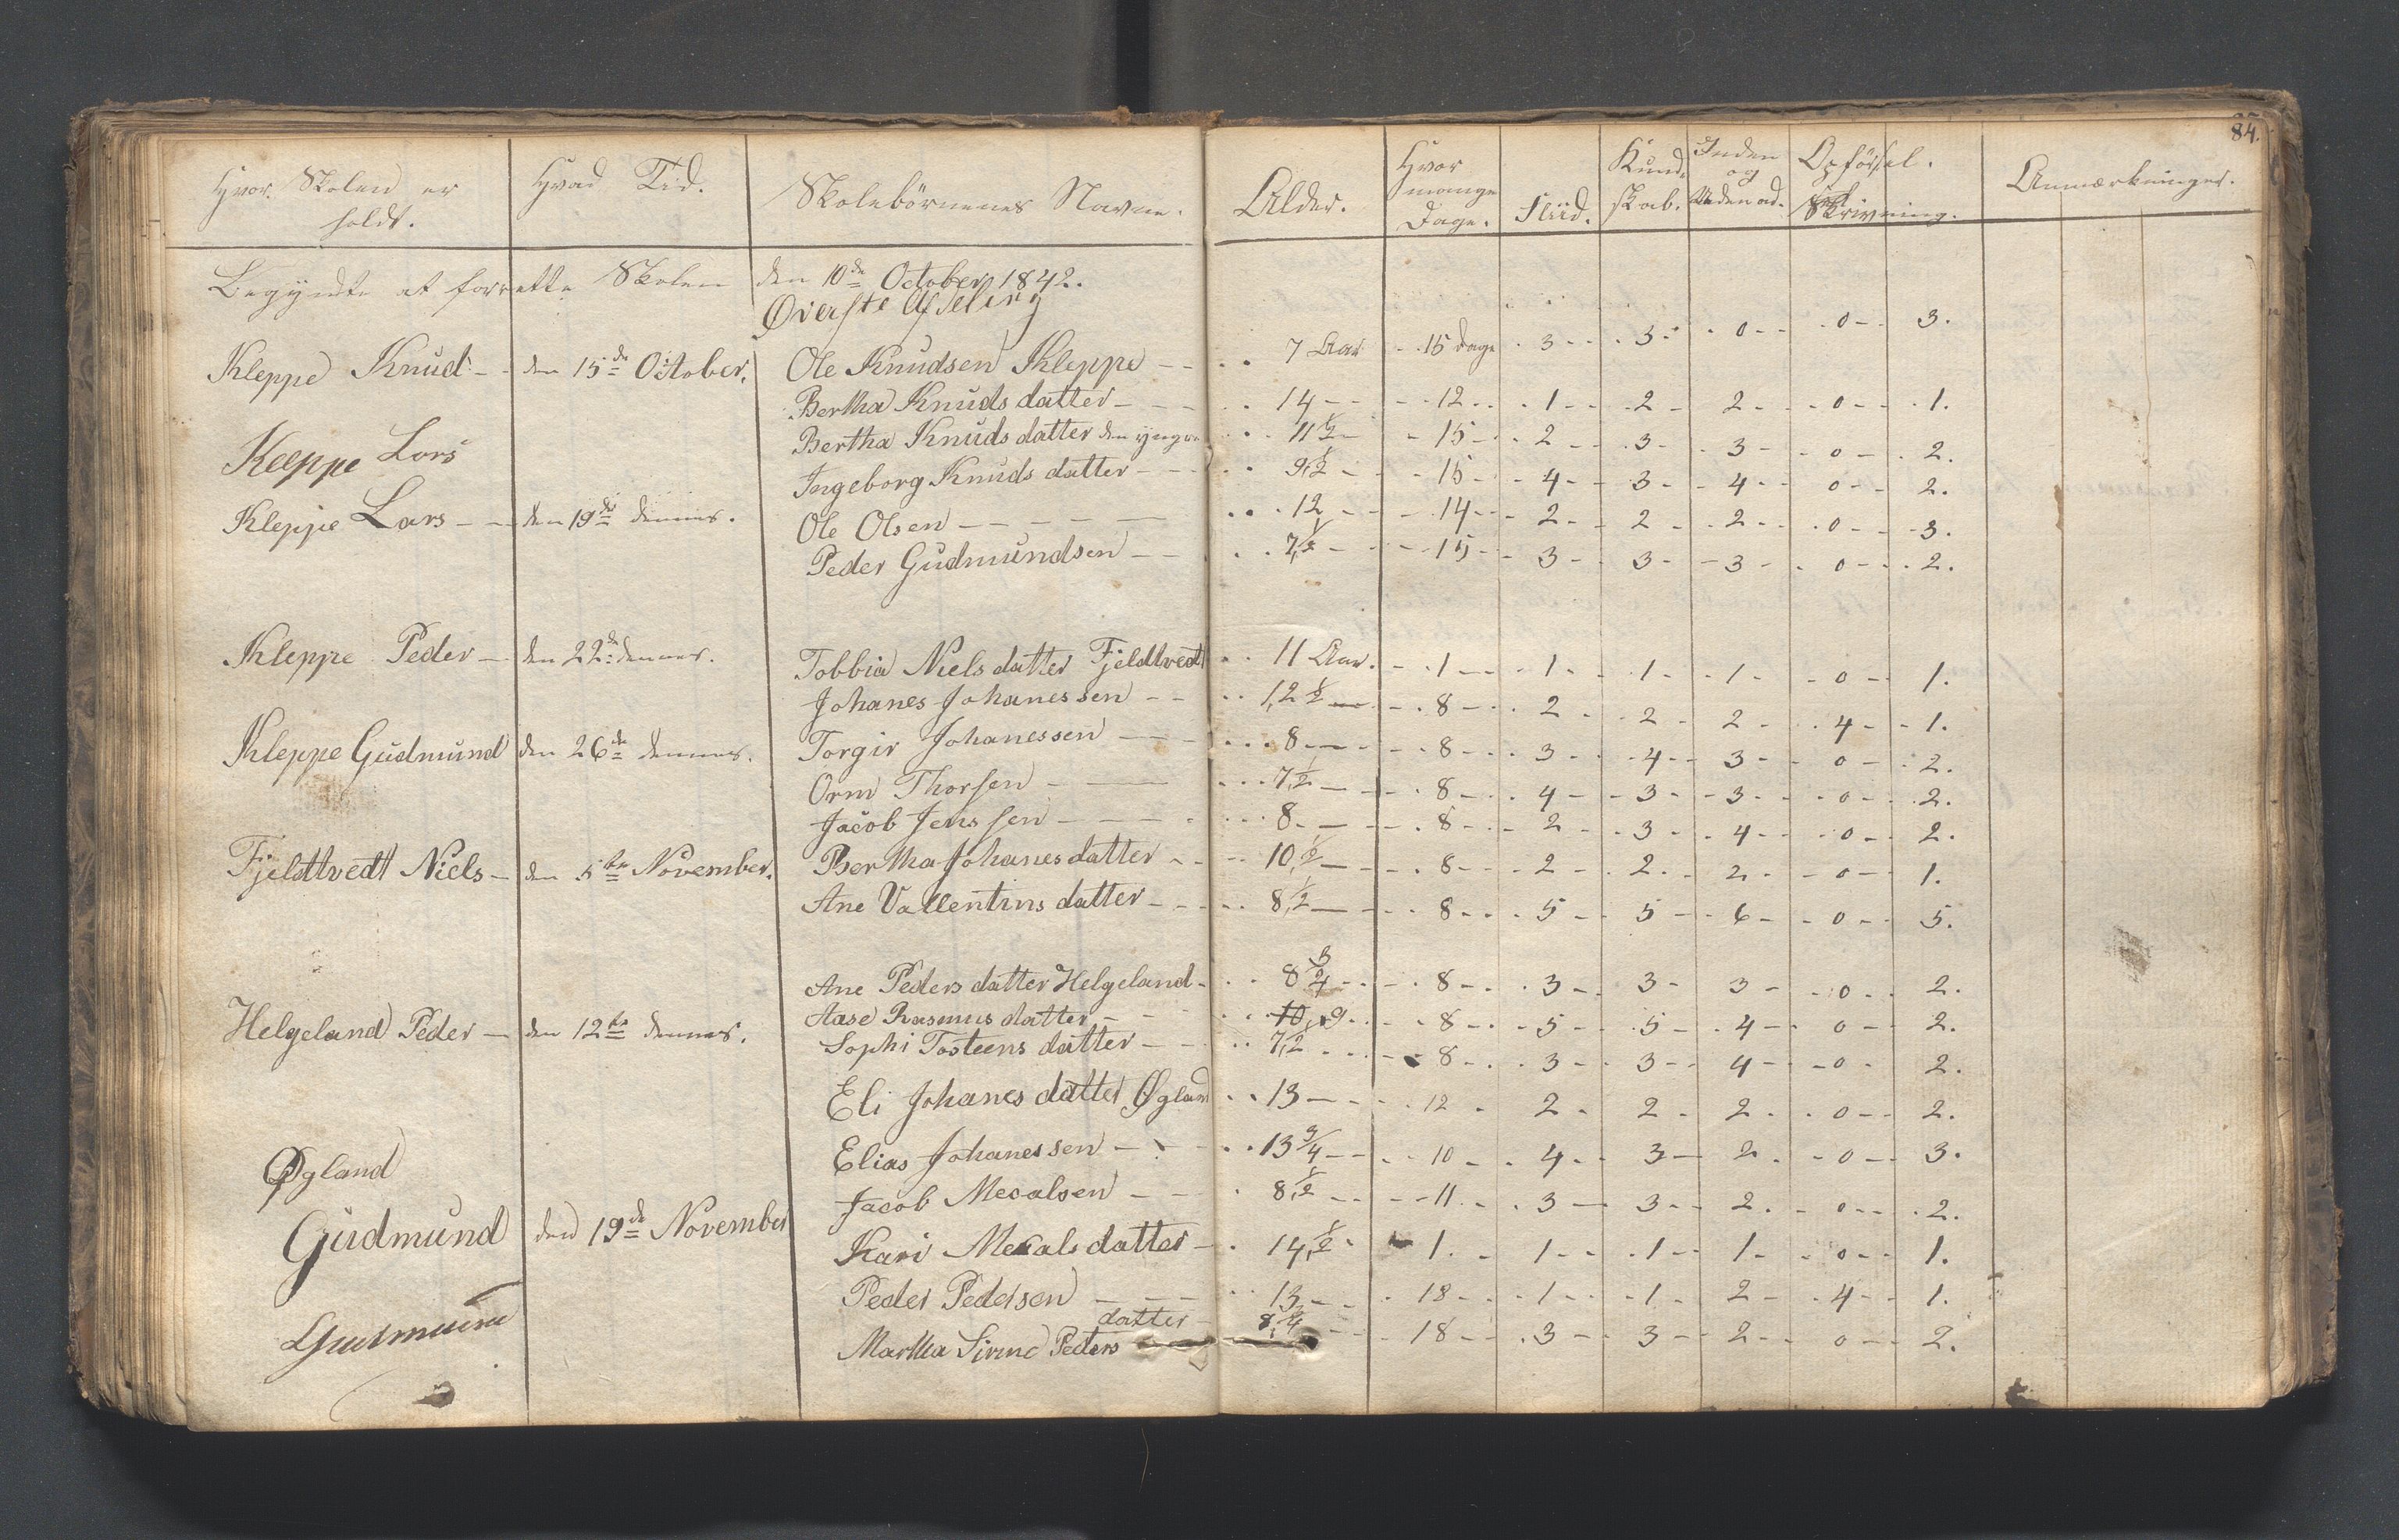 84.
Hvor Skolen er holdt. Hvad Tid. Skolebörnenes Navne. Alder. Hvor mange Dage. Fliid. Kundskab. Inden og Udenad. Opförsel. Skrivning. Anmærkninger.
Begyndte at forrette Skolen den 10de October 1842.
Øverste Afdeling
Kleppe Knud - den 15de October. Ole Knudsen Kleppe - - 7 Aar 15 Dage 3 3 0 0 3.
Bertha Knuds datter - - 14 12 1 2 2 0 1.
Bertha Knuds datter den yngre 11 1/2 15 2 3 3 0 2.
Kleppe Lars
Ingeborg Knuds datter - - 9 1/2 15 4 3 4 0 2.
Kleppe Lars - - den 19de dennes. Ole Olsen - - 12 14 2 2 2 0 3.
Peder Gudmundsen - - 7 1/2 15 3 3 3 0 2.
Kleppe Peder - den 22de dennes. Tobbia Niels datter Fjeldtvedt 11 Aar. 1 1 1 1 0 1.
Johanes Johanessen - - 12 1/2 8 2 2 2 4 1.
Kleppe Gudmund den 26de dennes. Torgir Johanessen - - 8 8 3 4 3 0 2.
Orm Thorsen - - 7 1/2 8 4 3 3 0 2.
Jacob Jenssen - - 8 8 2 3 4 0 2.
Fjeldtvedt Niels - den 5te November. Bertha Johanes datter - - 10 1/2 8 2 2 2 0 1.
Ane Vallentins datter - - 8 1/2 8 5 5 6 0 5.
Ane Peders datter Helgeland - 8 3/4 8 3 3 3 0 2.
Helgeland Peder - den 12te dennes. Aase Rasmus datter - - 10, 9 8 5 5 4 0 2.
Sophi Tosteens datter - - 7 1/2 8 3 3 4 0 2.
Eli Johanes datter Øgland 13 12 2 2 2 0 2.
Elias Johanessen - - 13 3/4 10 4 3 2 0 3.
Øgland
Jacob Mecalsen - - 8 1/2 11 3 3 2 0 2.
Gudmund den 19de November
Kari Mecals datter - 14 1/2 1 1 1 1 0 1.
Peder Pedersen - - 13 18 1 1 2 4 1.
Gudmund
datter
Martha Sirene Peders 8 3/4 18 3 3 2 0 2.